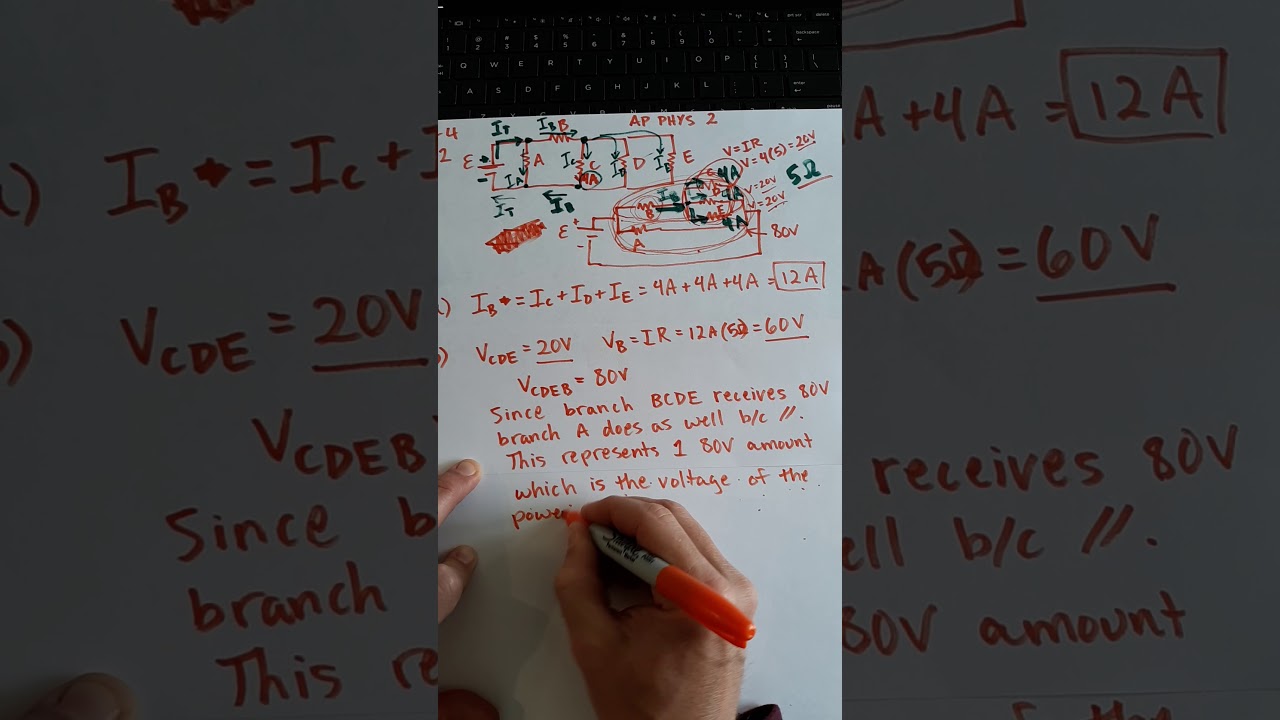 AP PHYS 2
V=IR
V=4(5)=20V
5Ω
I_T
I_B B
ε
A
I_A
I_C
C
4A
I_D
D
E
I_T
I_B
4A
D
4A
V=20V
V=20V
I_B
B
E
4A
ε
+
-
A
80V
I_B = I_C + I_D + I_E = 4A + 4A + 4A = 12A
V_CDE = 20V V_B = IR = 12A(5Ω) = 60V
V_CDEB = 80V
Since branch BCDE receives 80V
branch A does as well b/c //.
This represents 1 80V amount
which is the voltage of the
power